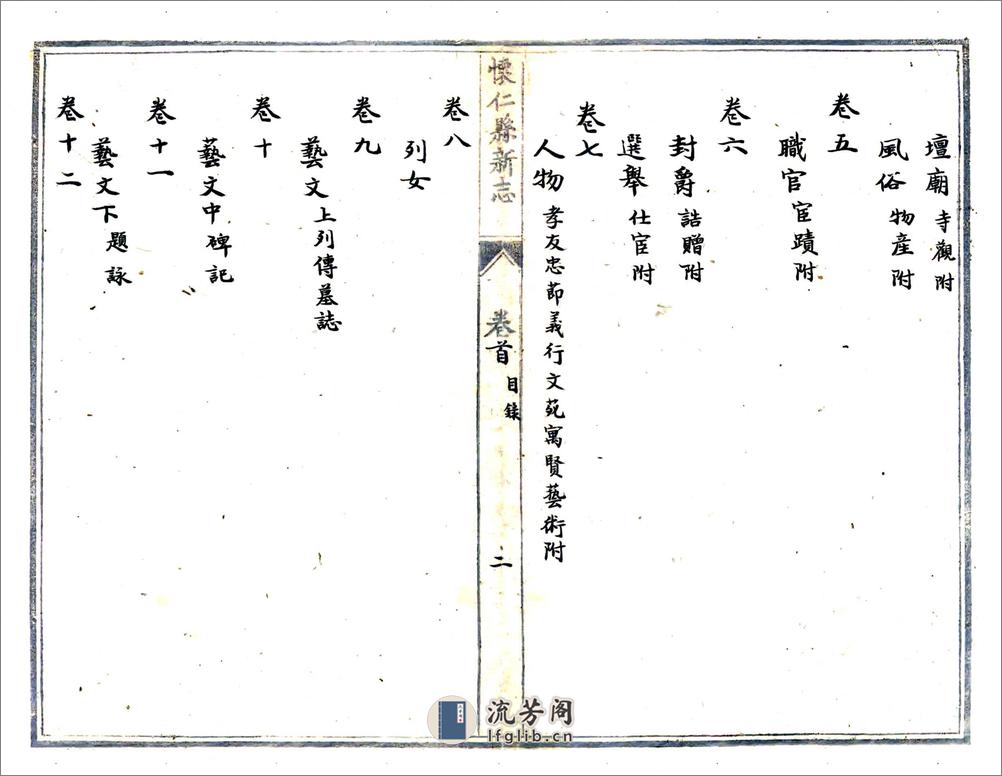 壇廟 寺觀附
風俗 物産附
卷五
職官 宦蹟附
卷六
封爵 誥贈附
選舉 仕宦附
卷七
人物 孝友忠節義行文苑寓賢藝術附
懷仁縣新志
卷首 目錄
二
卷八
列女
卷九
藝文上 列傳墓誌
卷十
藝文中 碑記
卷十一
藝文下 題詠
卷十二
流芳阁
lfglib.cn